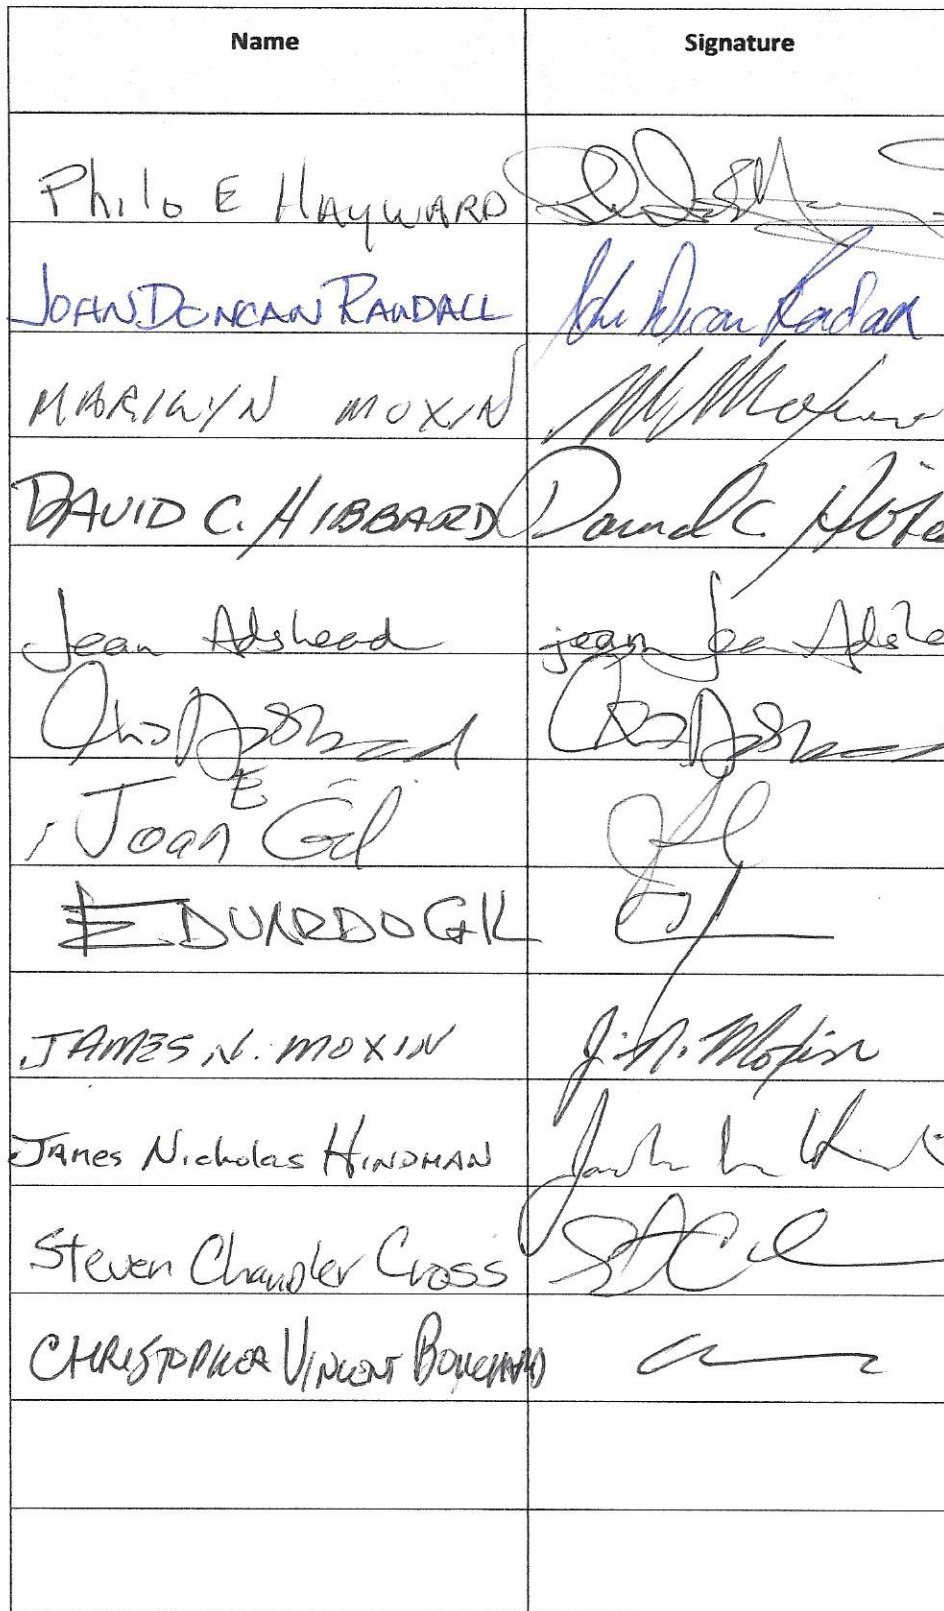 Name Signature
Philo E HAYWARD
JOHN DUNCAN RANDALL John Duncan Randall
MARILYN MOXIN M Moxin
DAVID C. HIBBARD David C. Hibba
Jean Adshead jean Jean Adshe
Adshead Adshead
E
Joan Gil
EDUARDO GIL
JAMES N. MOXIN J. N. Moxin
James Nicholas HINDMAN
Steven Chandler Cross
CHRISTOPHER VINCENT BOUCHARD